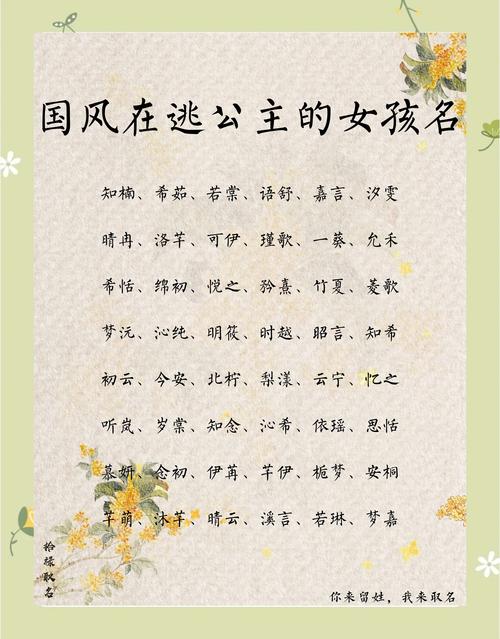 国风在逃公主的女孩名
知楠、希茹、若棠、语舒、嘉言、汐雯
晴冉、洛芊、可伊、瑾歌、一葵、允禾
希恬、绵初、悦之、矜熹、竹夏、菱歌
梦沅、沁纯、明筱、时越、昭言、知希
初云、今安、北柠、梨漾、云宁、忆之
听岚、岁棠、知念、沁希、依瑶、思恬
慕妍、念初、伊苒、芊伊、栀梦、安桐
芊萌、沐芊、晴云、溪言、若琳、梦嘉
拾椽取名
你来留姓，我来取名